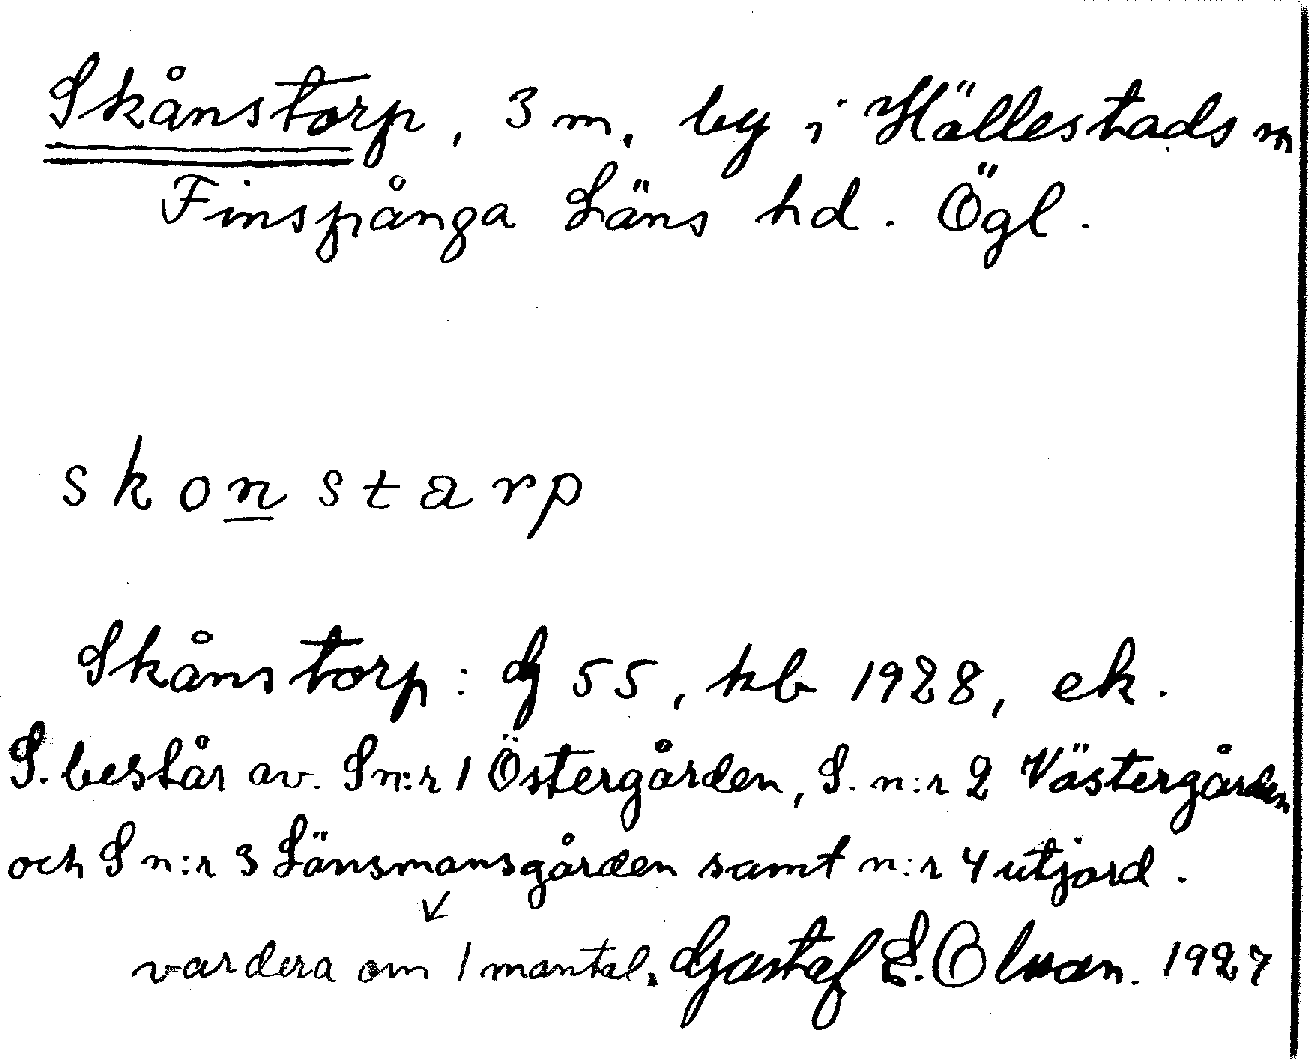 Skånstorp, 3 m. by i Hällestads sn
Finspånga Läns hd. Ögl.
skonstarp
Skånstorp: G 55, kb 1928, ek.
S. består av. S n:r 1 Östergården, S. n:r 2 Västergården
och S n:r 3 Länsmansgården samt n:r 4 utjord.
vardera om 1 mantal. Gustaf E. Olsson. 1927